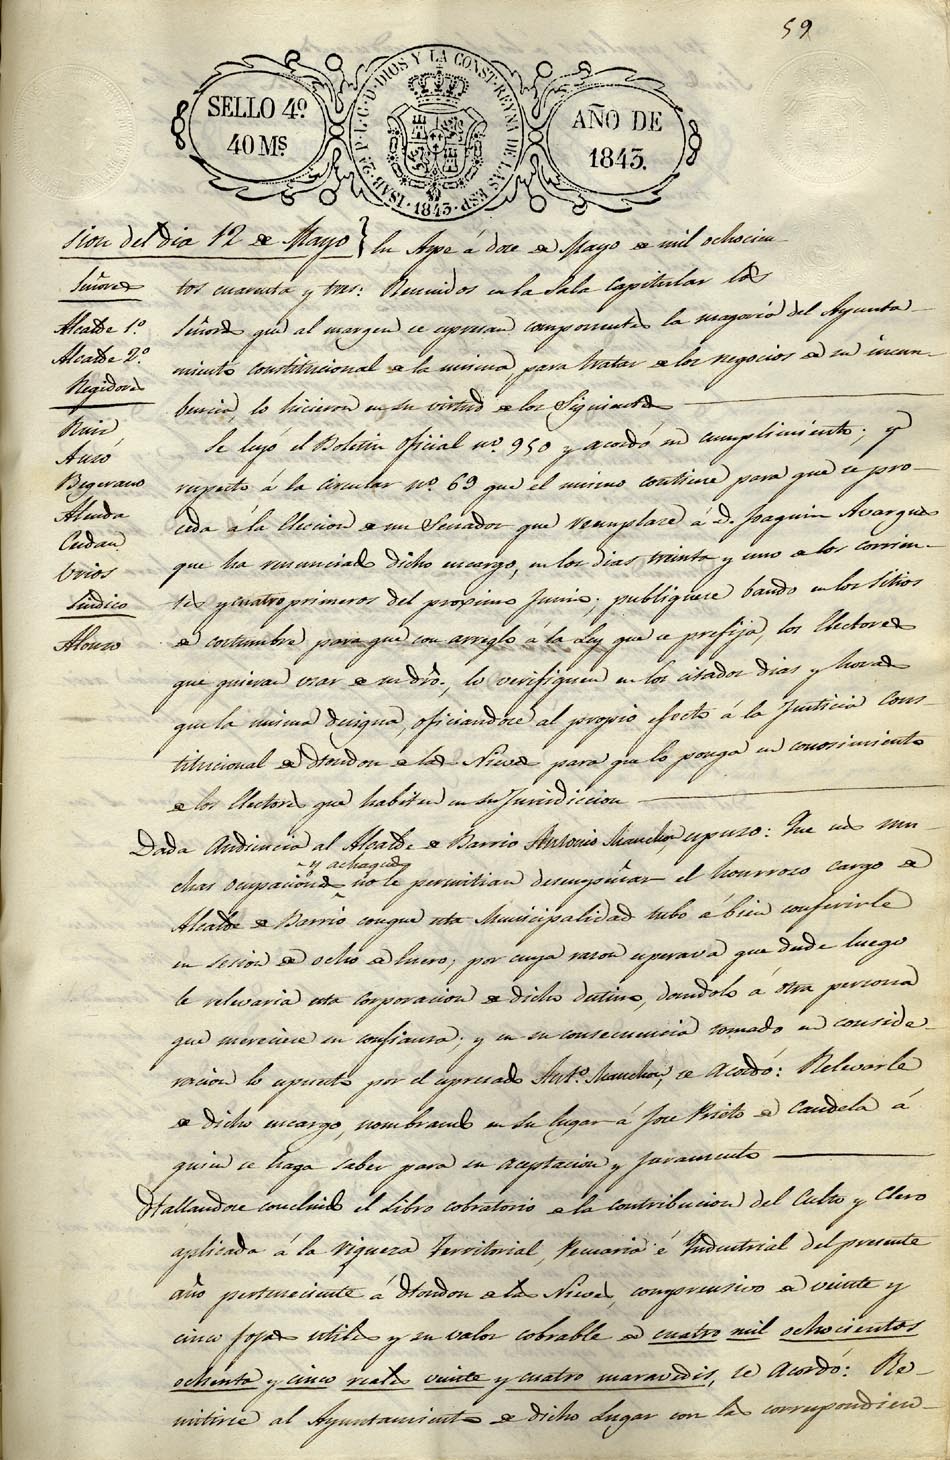 59
SELLO 4º
40 Ms.
ISAB. 2ª P. L. G. D. DIOS Y LA CONST. REYNA DE LAS ESP. 1843.
AÑO DE
1843.
sion del dia 12 de Mayo} En Aspe á doce de Mayo de mil ochocien-
Señores
tos cuarenta y tres: Reunidos en la Sala Capitular los
Alcalde 1º
Señores que al margen se espresan componentes la mayoria del Ayunta-
Alcalde 2º
miento constitucional de la misma, para tratar de los negocios de su incum-
Regidores
bencia, lo hicieron en su virtud de los Siguientes
Ruiz
Se leyó el Boletin Oficial nº 950 y acordó su cumplimiento; y
Begerano
respecto á la Circular nº 69 que el mismo contiene para que se pro-
Almida
ceda á la Eleccion de un Senador que reemplace á D. Joaquin Abargues
que ha renunciado dicho encargo, en los dias treinta y uno de los corrien-
Urios
Sindico
tes y cuatro primeros del proximo Junio, publiquese bando en los sitios
Alonso
de costumbre para que con arreglo á la Ley que se prefija, los Electores
que quieran usar de su dro., lo verifiquen en los citados dias y horas
que la misma designa, oficiandose al propio efecto á la Justicia Cons-
titucional de Hondon de las Nieves para que lo ponga en conocimiento
de los Electores que habiten en su Jurisdiccion
Dada Audiencia al Alcalde de Barrio Antonio Manchon, espuso: Que sus mu-
y achaques
chas ocupaciones no le permitian desempeñar el honrroso cargo de
Alcalde de Barrio conque esta Municipalidad tubo á bien conferirle
en sesion de ocho de Enero; por cuya razon esperava que desde luego
le relevaria esta corporacion de dicho destino, dandolo á otra persona
que mereciese su confianza; y en su consecuencia tomado en conside-
racion lo espuesto por el espresado Antº Manchon, se Acordó: Relevarle
de dicho encargo, nombrando en su lugar á Jose Prieto de Candela á
quien se haga saber para su aceptacion y juramento
Hallandose concluido el Libro cobratorio de la contribucion del Culto y Clero
aplicada á la riqueza Territorial, Pecuaria é Industrial del presente
año perteneciente á Hondon de las Nieves, comprensivo de veinte y
cinco fojas utiles y su valor cobrable de cuatro mil ochocientos
ochenta y cinco reales veinte y cuatro maravedis, se Acordó: Re-
mitirse al Ayuntamiento de dicho Lugar con las correspondien-